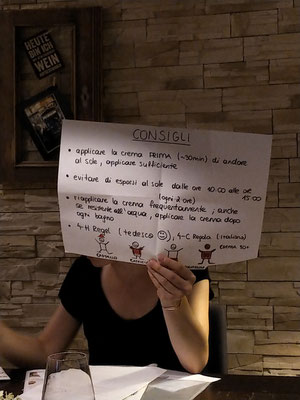 HEUTE
BIN ICH
WEIN
CONSIGLI
• applicare la crema PRIMA (~30min) di andare
al sole, applicare sufficiente
• evitare di esporsi al sole dalle ore 10:00 alle ore
15:00
(ogni 2 ore)
• riapplicare la crema frequentemente, anche
se resistente all'acqua, applicare la crema dopo
ogni bagno
• 4-H Regel (tedesco ☺), 4-C Regola (italiano)
crema 50+